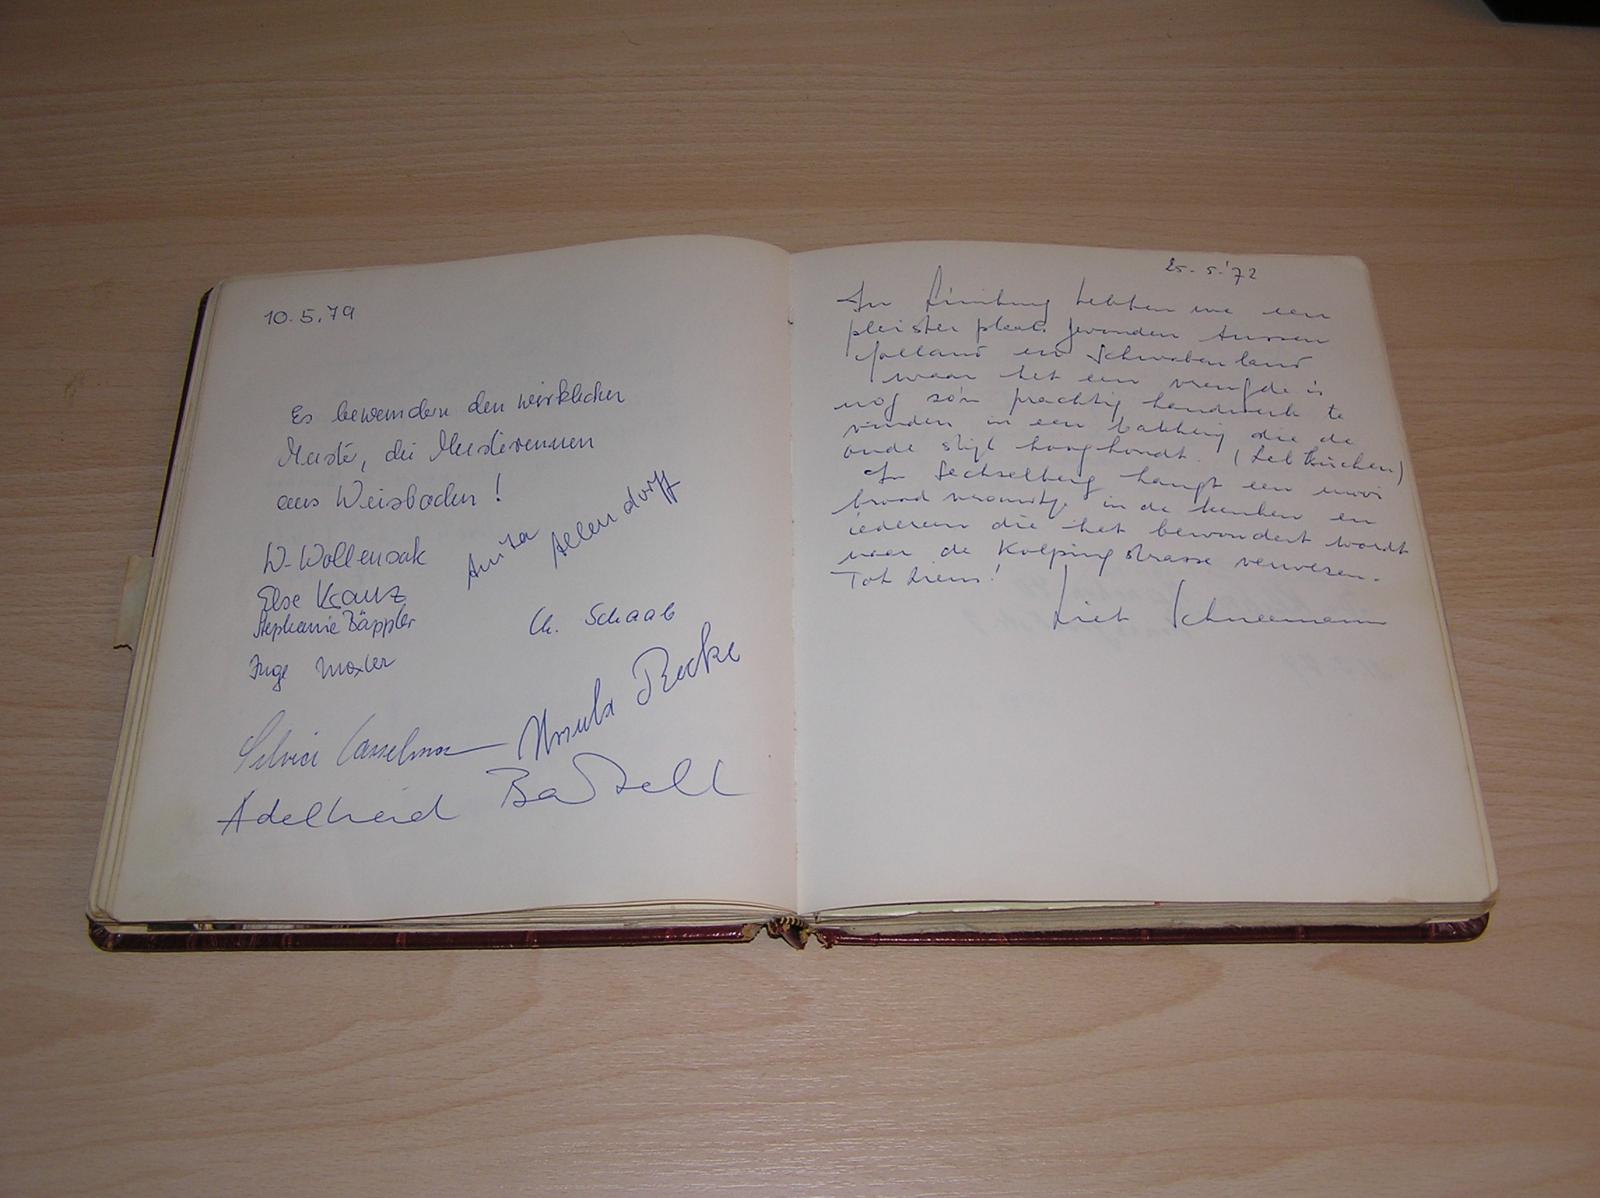 10.5.79
Es bewundern den wirklichen
Meister, die Meisterinnen
aus Wiesbaden!
W. Wollensak
Anita Allendorff
Else Kranz
Stephanie Däppler
Ch. Schaab
Inge Moxter
Ursula Recke
Silvia Casselmann
Adelheid
25.5.'72
In Limburg hebben we een
pleisterplaats gevonden tussen
Holland en Schwabenland
waar het een vreugde is
nog zo'n prachtig handwerk te
vinden in een bakkerij die de
oude stijl hooghoudt. (Lebkuchen)
In Sechselberg hangt een mooi
brood vrouwtje in de keuken en
iedereen die het bewondert wordt
naar de Kolpingstrasse verwezen.
Tot ziens!
Schneemann